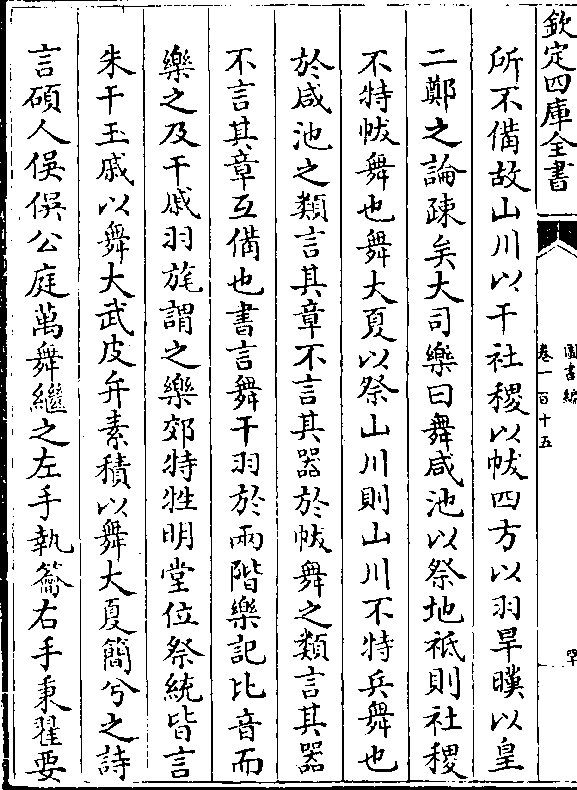 欽定四庫全書
圖書編
卷一百十五
所不備故山川以干社稷以帗四方以羽旱暵以皇
二鄭之論疎矣大司樂曰舞咸池以祭地祇則社稷
不特帗舞也舞大夏以祭山川則山川不特兵舞也
於咸池之類言其章不言其器於帗舞之類言其器
不言其章互備也書言舞干羽於兩階樂記比音而
樂之及干戚羽旄謂之樂郊特牲明堂位祭統皆言
朱干玉戚以舞大武皮弁素積以舞大夏簡兮之詩
言碩人俁俁公庭萬舞繼之左手執籥右手秉翟要